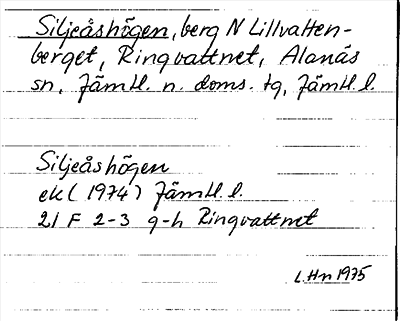 Siljeåshögen, berg N Lillvatten-
berget, Ringvattnet, Alanäs
sn, Jämtl. n. doms. tg, Jämtl. l.
Siljeåshögen
ek (1974) Jämtl. l.
21 F 2-3 g-h Ringvattnet
L. Hn 1975